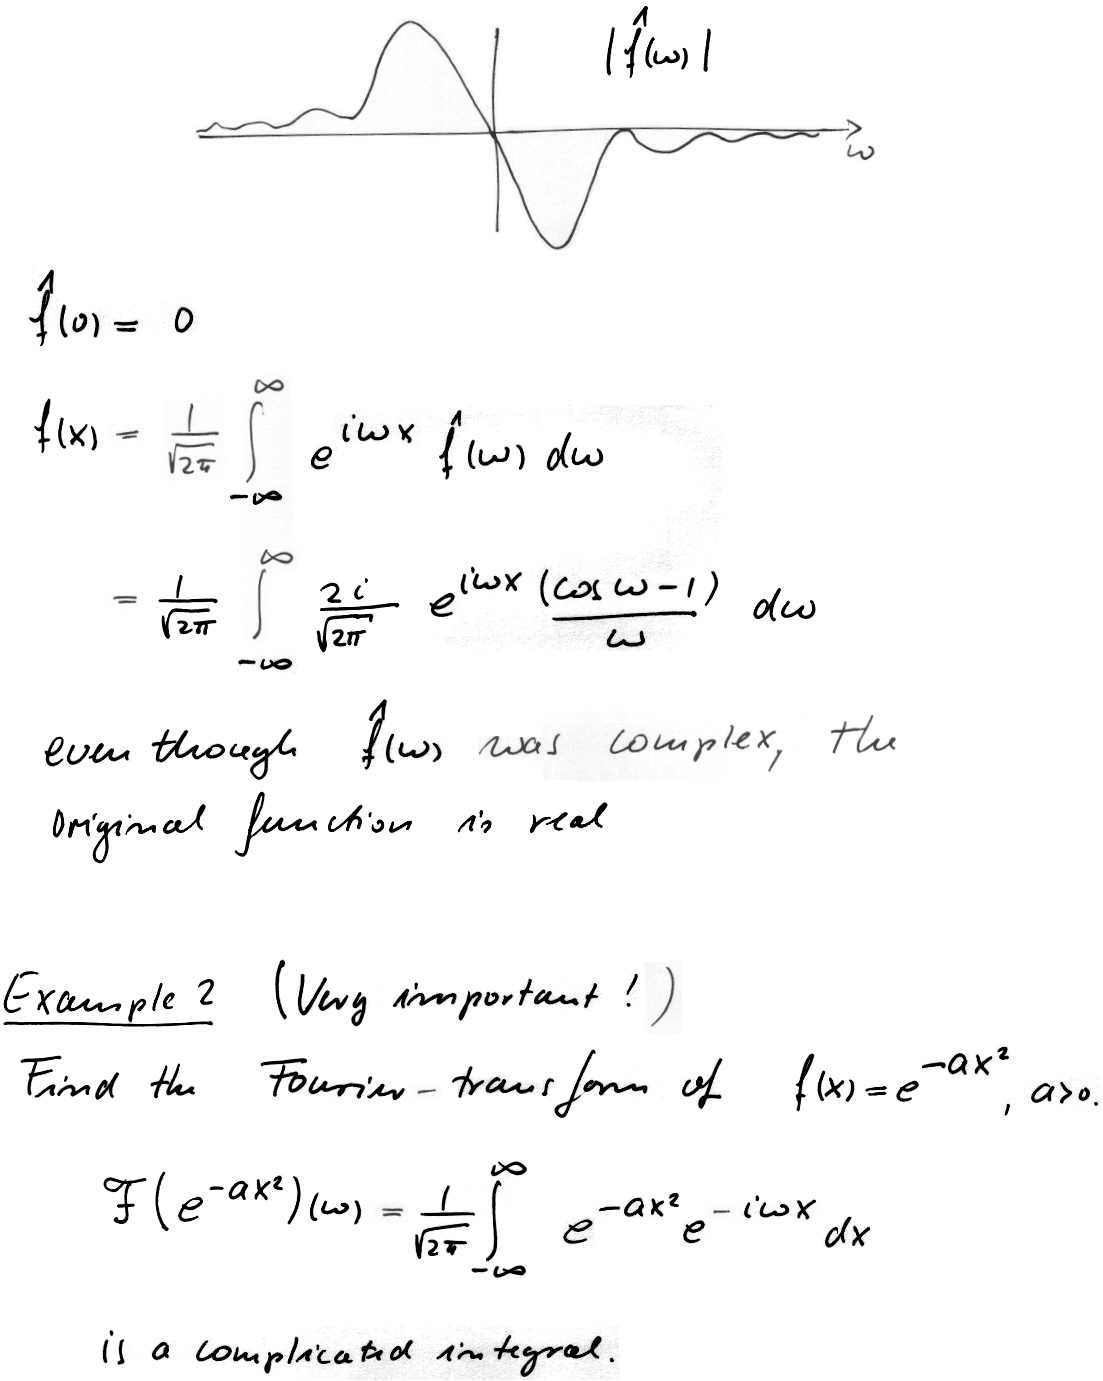 |f̂(ω)|
ω
f̂(0) = 0
f(x) = 1/√2π ∫_{-∞}^{∞} e^{iωx} f̂(ω) dω
= 1/√2π ∫_{-∞}^{∞} 2i/√2π e^{iωx} (cos ω - 1)/ω dω
even though f̂(ω) was complex, the
original function is real
Example 2 (Very important!)
Find the Fourier-transform of f(x) = e^{-ax²}, a>0.
F(e^{-ax²})(ω) = 1/√2π ∫_{-∞}^{∞} e^{-ax²} e^{-iωx} dx
is a complicated integral.